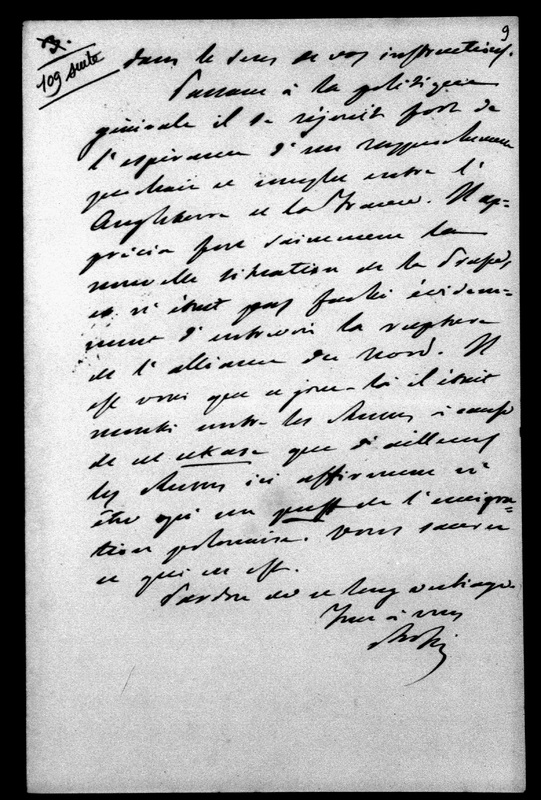 9
109 suite
dans le sens de vos instructions.
Passant à la politique
générale il se réjouit fort de
l'espérance d'un rapprochement
prochain et complet entre l'
Angleterre et la France. Il ap-
précia fort sainement la
nouvelle situation de la Prusse,
et n'était pas fâché évidem-
ment d'entrevoir la rupture
de l'alliance du Nord. Il
est vrai que ce jour-là il était
monté contre les Russes à cause
de cet ukase que d'ailleurs
les Russes ici affirment n'
être qu'un puff de l'émigra-
tion polonaise. Vous savez
ce qui en est.
Pardon de ce long verbiage.
Tout à vous